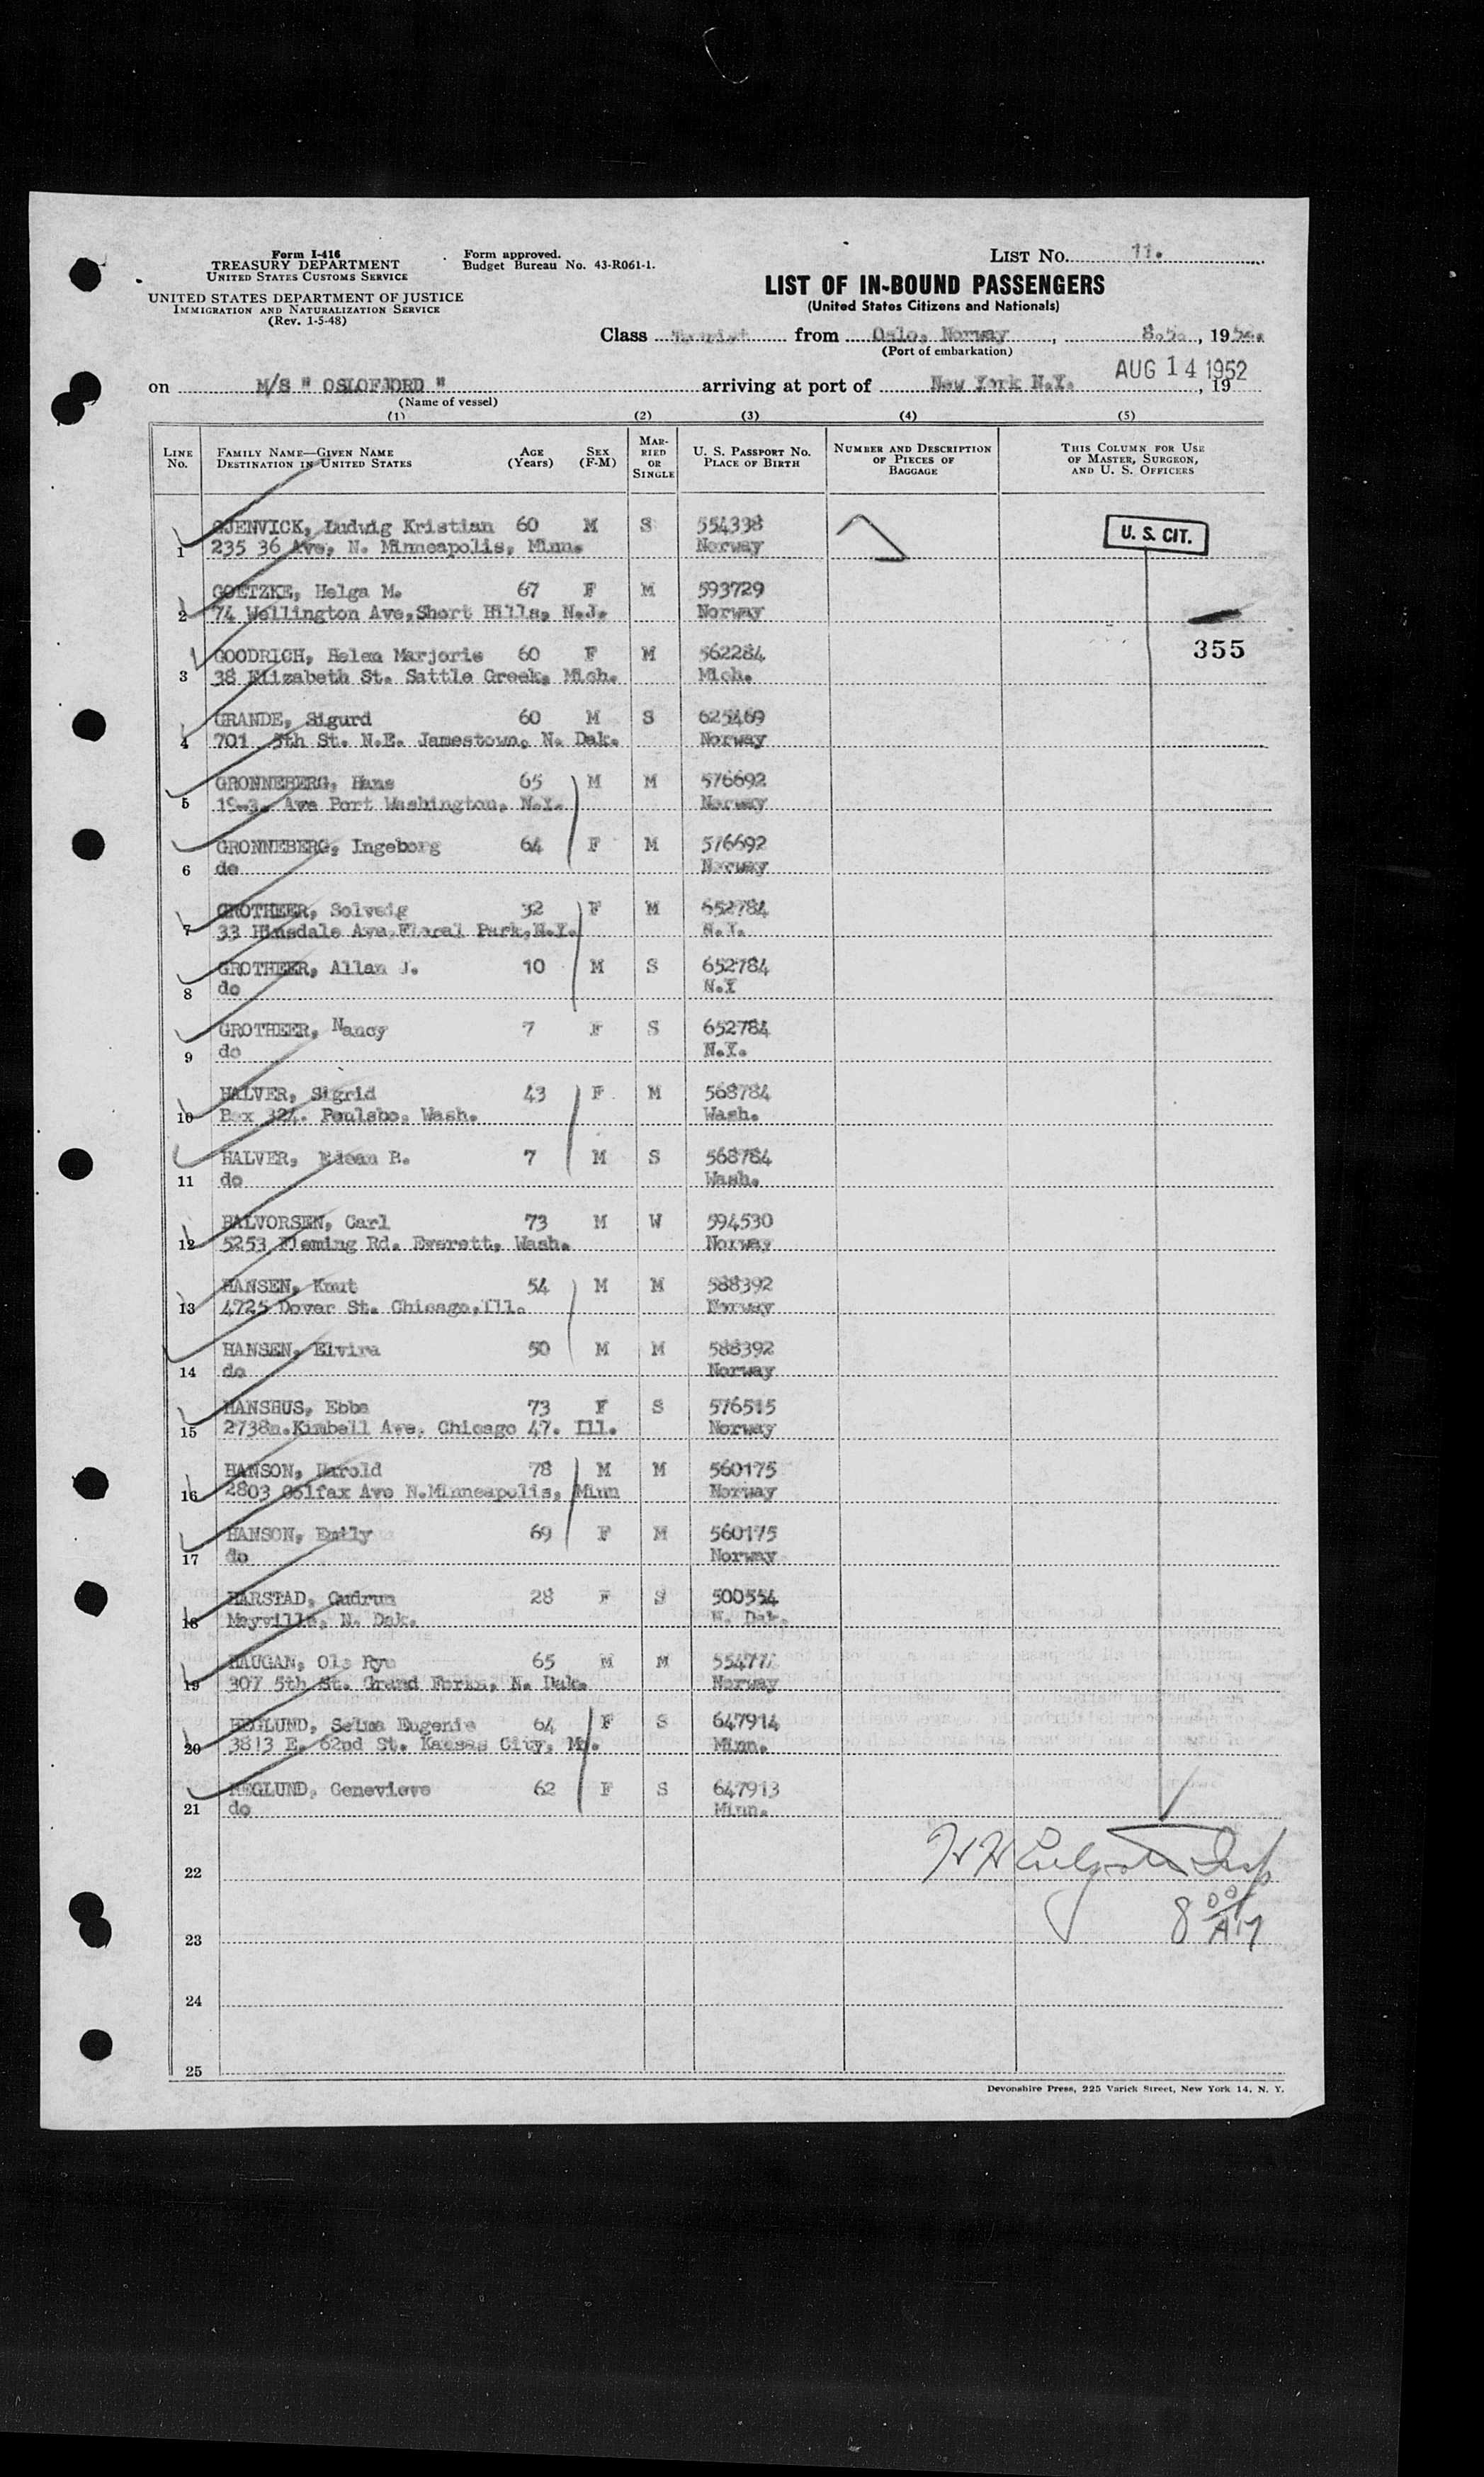 Form I-416
TREASURY DEPARTMENT
UNITED STATES CUSTOMS SERVICE
UNITED STATES DEPARTMENT OF JUSTICE
IMMIGRATION AND NATURALIZATION SERVICE
(Rev. 1-5-48)
Form approved.
Budget Bureau No. 43-R061-1.
LIST NO. 11.
LIST OF IN-BOUND PASSENGERS
(United States Citizens and Nationals)
Class Tourist from Oslo, Norway, 8.5., 19
(Port of embarkation)
on M/S " OSLOFJORD " arriving at port of New York N.Y. AUG 14 1952, 19
(Name of vessel)
(1) (2) (3) (4) (5)
LINE NO. FAMILY NAME—GIVEN NAME DESTINATION IN UNITED STATES AGE (Years) SEX (F-M) MARRIED OR SINGLE U. S. PASSPORT NO. PLACE OF BIRTH NUMBER AND DESCRIPTION OF PIECES OF BAGGAGE THIS COLUMN FOR USE OF MASTER, SURGEON, AND U. S. OFFICERS
GJENVICK, Ludwig Kristian 60 M S 554338 U. S. CIT.
1 235 36 Ave, N. Minneapolis, Minn. Norway
GOETZKE, Helga M. 67 F M 593729
2 74 Wellington Ave,Short Hills, N.J. Norway
355
GOODRICH, Helen Marjorie 60 F M 562284
3 38 Elizabeth St. Sattle Creek. Mich. Mich.
GRANDE, Sigurd 60 M S 625469
4 701 5th St. N.E. Jamestown, N. Dak. Norway
GRONNEBERG, Hans 65 M M 576692
5 19-3. Ave Port Washington, N.Y. Norway
GRONNEBERG, Ingeborg 64 F M 576692
6 do Norway
GROTHEER, Solveig 32 F M 652784
7 33 Hinsdale Ave.Floral Park,N.Y. N.Y.
GROTHEER, Allan J. 10 M S 652784
8 do N.Y
GROTHEER, Nancy 7 F S 652784
9 do N.Y.
HALVER, Sigrid 43 F M 568784
10 Box 324. Poulsbo, Wash. Wash.
HALVER, Edean B. 7 M S 568784
11 do Wash.
HALVORSEN, Carl 73 M W 594530
12 5253 Fleming Rd. Everett, Wash. Norway
HANSEN, Knut 54 M M 588392
13 4725 Dover St. Chicago,Ill. Norway
HANSEN, Elvira 50 M M 588392
14 do Norway
HANSHUS, Ebba 73 F S 576515
15 2738n.Kimball Ave. Chicago 47. Ill. Norway
HANSON, Harold 78 M M 560175
16 2803 Colfax Ave N.Minneapolis, Minn Norway
HANSON, Emily 69 F M 560175
17 do Norway
HARSTAD, Gudrun 28 F S 500554
18 Mayville, N. Dak. N. Dak.
HAUGAN, Ole Rye 65 M M
19 307 5th St. Grand Forks, N. Dak. Norway
HEGLUND, Selma Eugenie 64 F S 647914
20 3813 E. 62nd St. Kansas City, Mo. Minn.
HEGLUND, Genevieve 62 F S 647913
21 do Minn.
22
8 00 AM
23
24
25
Devonshire Press, 225 Varick Street, New York 14, N. Y.